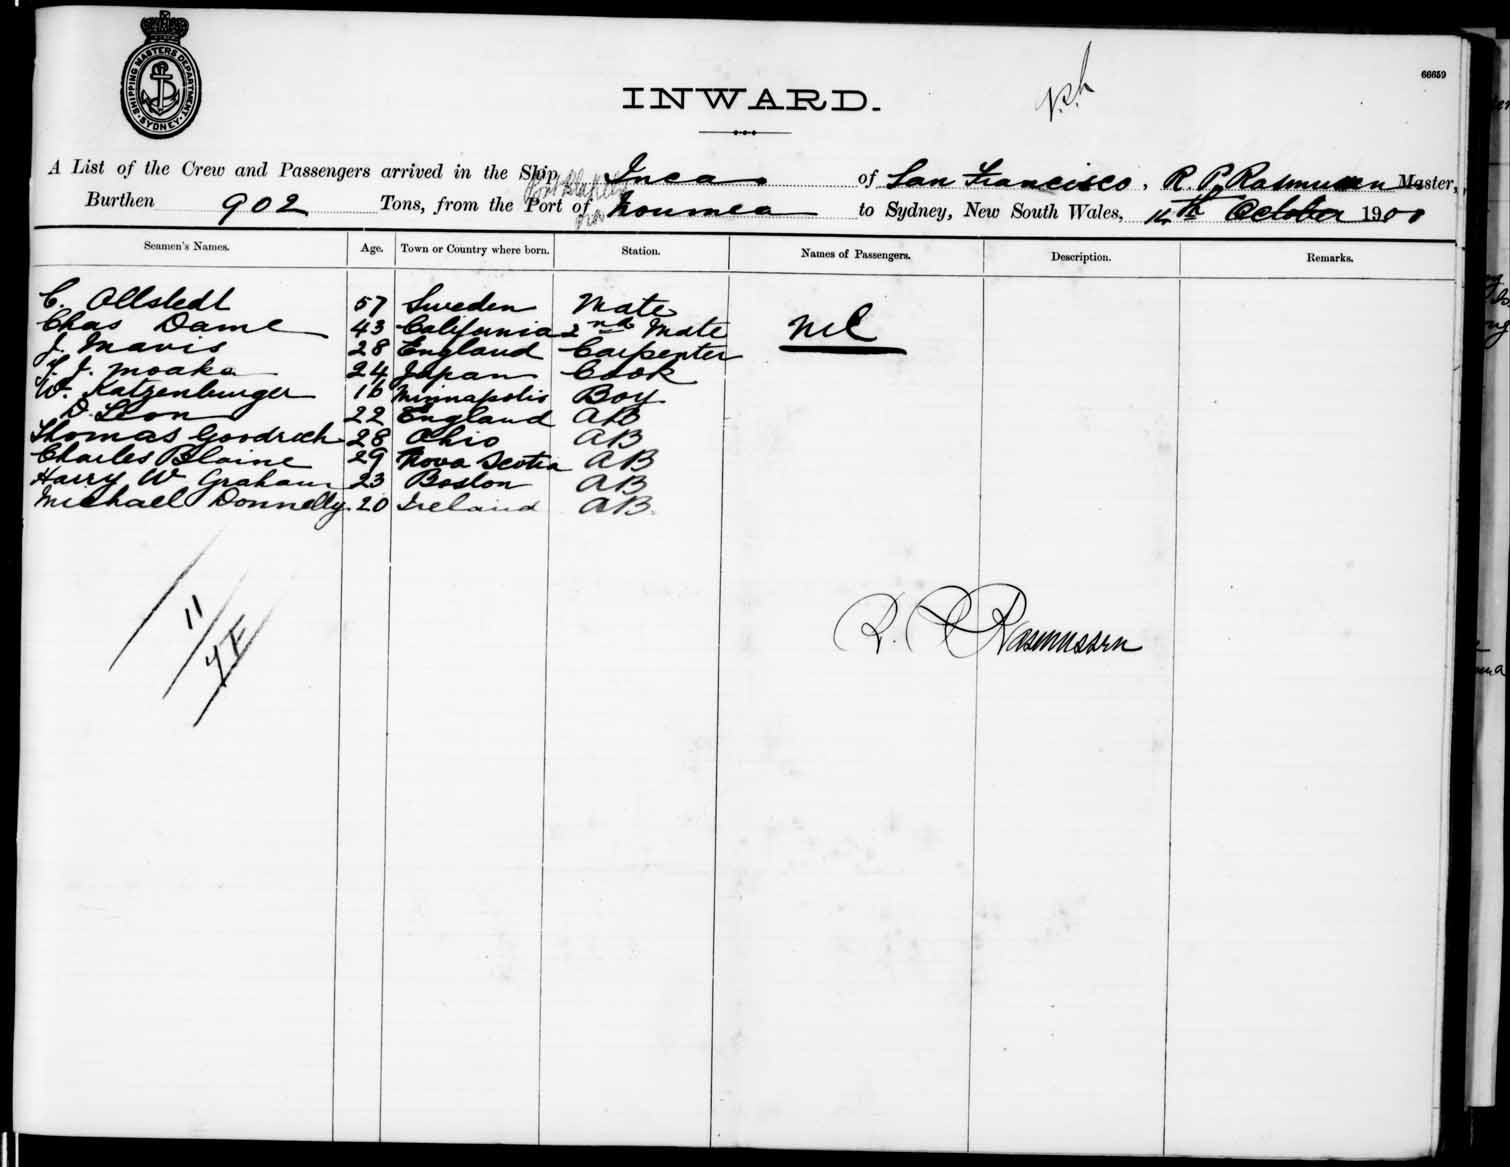 SHIPPING MASTERS DEPARTMENT
SYDNEY
66659
INWARD.
A List of the Crew and Passengers arrived in the Ship Inca of San Francisco, R. P. Rasmussen Master,
Burthen 902 Tons, from the Port of Noumea to Sydney, New South Wales, 14th October 1900
Seamen's Names. Age. Town or Country where born. Station. Names of Passengers. Description. Remarks.
C. Ollstedt 57 Sweden Mate
Chas Dame 43 California 2nd Mate nil
J. Mavis 28 England Carpenter
J. Moaka 24 Japan Cook
W. Katzenburger 16 Minnapolis Boy
D. Leon 22 England AB
Thomas Goodrich 28 Ohio AB
Charles Blaine 29 Nova Scotia AB
Harry W Graham 23 Boston AB
Michael Donnelly. 20 Ireland AB.
11
R. P. Rasmussen